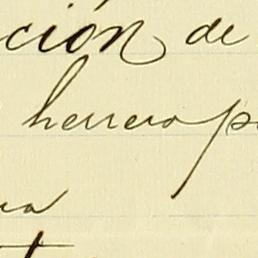 ción de
herrero p
ra